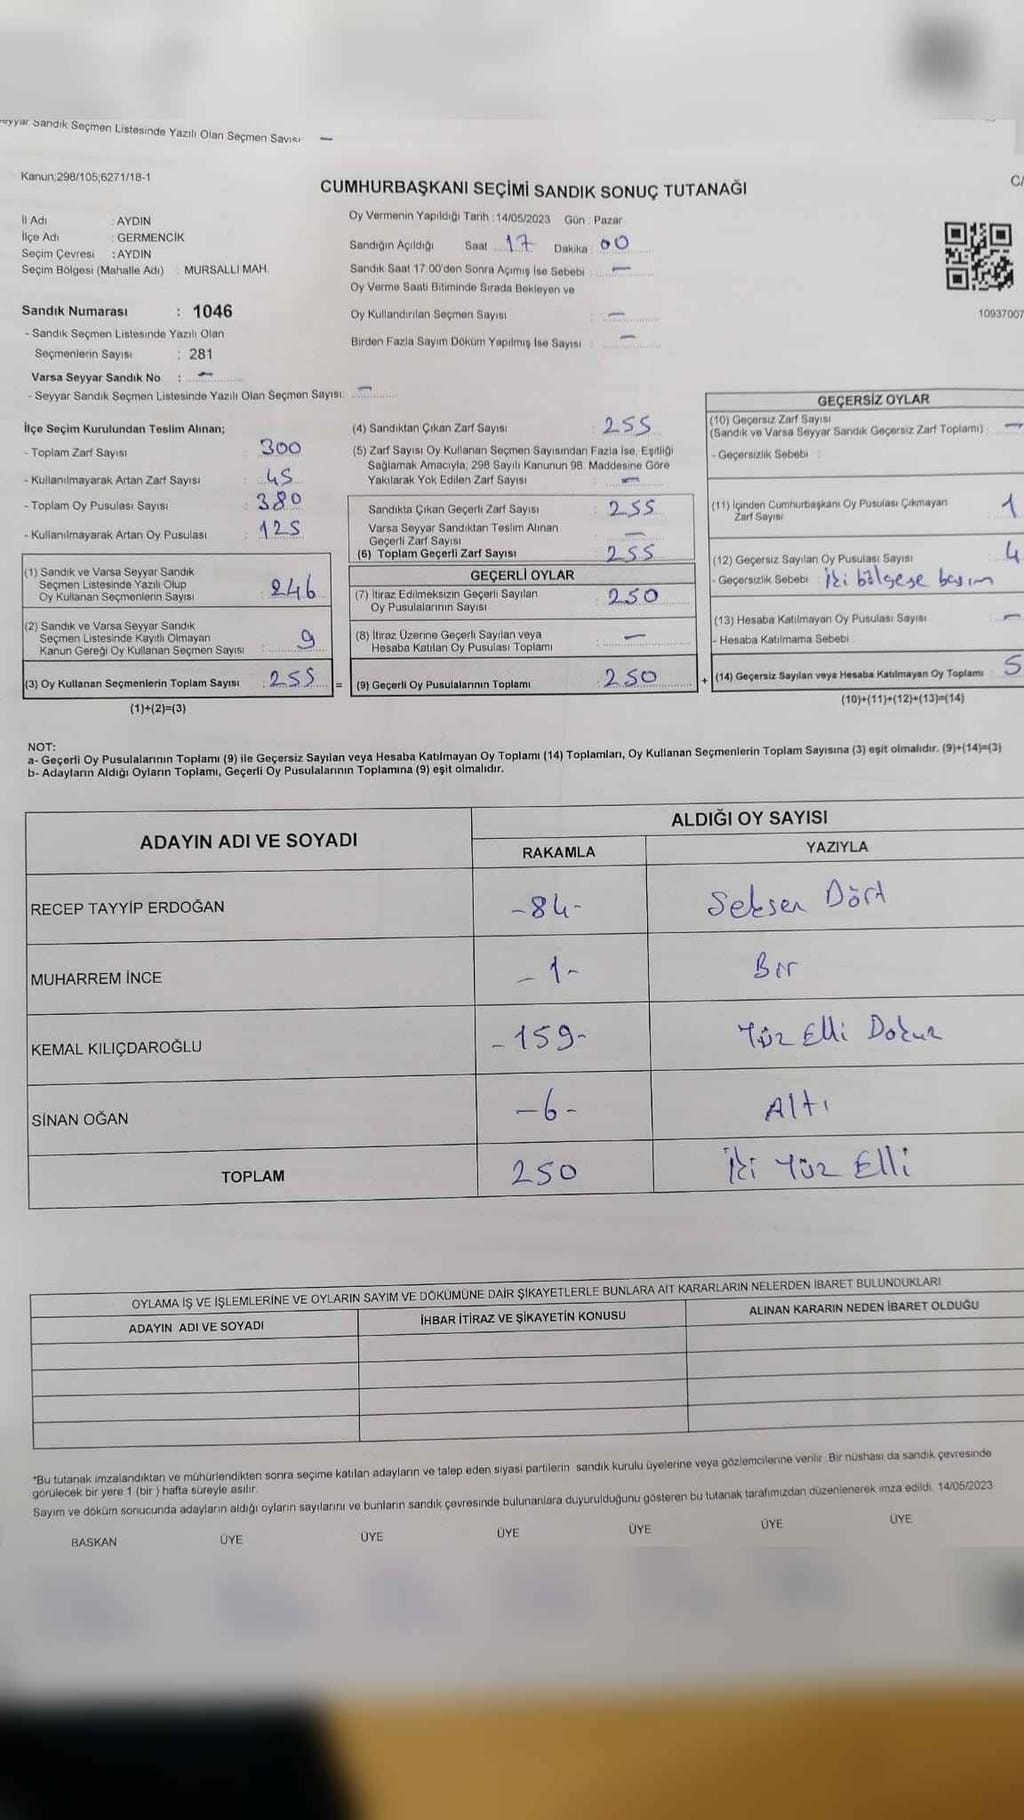 Seyyar Sandık Seçmen Listesinde Yazılı Olan Seçmen Sayısı —
Kanun;298/105;6271/18-1
CUMHURBAŞKANI SEÇİMİ SANDIK SONUÇ TUTANAĞI
C/
İl Adı : AYDIN
İlçe Adı : GERMENCİK
Seçim Çevresi : AYDIN
Seçim Bölgesi (Mahalle Adı) : MURSALLI MAH.
Oy Vermenin Yapıldığı Tarih : 14/05/2023 Gün : Pazar
Sandığın Açıldığı Saat 17 Dakika : 00
Sandık Saat 17:00'den Sonra Açımış İse Sebebi : —
Oy Verme Saati Bitiminde Sırada Bekleyen ve
Oy Kullandırılan Seçmen Sayısı : —
Birden Fazla Sayım Döküm Yapılmış İse Sayısı : —
10937007
Sandık Numarası : 1046
- Sandık Seçmen Listesinde Yazılı Olan
Seçmenlerin Sayısı : 281
Varsa Seyyar Sandık No : —
- Seyyar Sandık Seçmen Listesinde Yazılı Olan Seçmen Sayısı: —
İlçe Seçim Kurulundan Teslim Alınan;
- Toplam Zarf Sayısı : 300
- Kullanılmayarak Artan Zarf Sayısı : 45
- Toplam Oy Pusulası Sayısı : 380
- Kullanılmayarak Artan Oy Pusulası : 125
(1) Sandık ve Varsa Seyyar Sandık
Seçmen Listesinde Yazılı Olup
Oy Kullanan Seçmenlerin Sayısı : 246
(2) Sandık ve Varsa Seyyar Sandık
Seçmen Listesinde Kayıtlı Olmayan
Kanun Gereği Oy Kullanan Seçmen Sayısı : 9
(3) Oy Kullanan Seçmenlerin Toplam Sayısı : 255 =
(1)+(2)=(3)
(4) Sandıktan Çıkan Zarf Sayısı : 255
(5) Zarf Sayısı Oy Kullanan Seçmen Sayısından Fazla İse, Eşitliği
Sağlamak Amacıyla, 298 Sayılı Kanunun 98. Maddesine Göre
Yakılarak Yok Edilen Zarf Sayısı : —
Sandıkta Çıkan Geçerli Zarf Sayısı : 255
Varsa Seyyar Sandıktan Teslim Alınan
Geçerli Zarf Sayısı : —
(6) Toplam Geçerli Zarf Sayısı : 255
GEÇERLİ OYLAR
(7) İtiraz Edilmeksizin Geçerli Sayılan
Oy Pusulalarının Sayısı : 250
(8) İtiraz Üzerine Geçerli Sayılan veya
Hesaba Katılan Oy Pusulası Toplamı : —
(9) Geçerli Oy Pusulalarının Toplamı : 250 +
GEÇERSİZ OYLAR
(10) Geçersiz Zarf Sayısı
(Sandık ve Varsa Seyyar Sandık Geçersiz Zarf Toplamı) : —
- Geçersizlik Sebebi :
(11) İçinden Cumhurbaşkanı Oy Pusulası Çıkmayan
Zarf Sayısı 1
(12) Geçersiz Sayılan Oy Pusulası Sayısı : 4
- Geçersizlik Sebebi : İki bölgeye basım
(13) Hesaba Katılmayan Oy Pusulası Sayısı : —
- Hesaba Katılmama Sebebi :
(14) Geçersiz Sayılan veya Hesaba Katılmayan Oy Toplamı 5
(10)+(11)+(12)+(13)=(14)
NOT:
a- Geçerli Oy Pusulalarının Toplamı (9) ile Geçersiz Sayılan veya Hesaba Katılmayan Oy Toplamı (14) Toplamları, Oy Kullanan Seçmenlerin Toplam Sayısına (3) eşit olmalıdır. (9)+(14)=(3)
b- Adayların Aldığı Oyların Toplamı, Geçerli Oy Pusulalarının Toplamına (9) eşit olmalıdır.
ADAYIN ADI VE SOYADI
ALDIĞI OY SAYISI
RAKAMLA YAZIYLA
RECEP TAYYİP ERDOĞAN -84- Seksen Dört
MUHARREM İNCE -1- Bir
KEMAL KILIÇDAROĞLU -159- Yüz Elli Dokuz
SİNAN OĞAN -6- Altı
TOPLAM 250 İki Yüz Elli
OYLAMA İŞ VE İŞLEMLERİNE VE OYLARIN SAYIM VE DÖKÜMÜNE DAİR ŞİKAYETLERLE BUNLARA AİT KARARLARIN NELERDEN İBARET BULUNDUKLARI
ADAYIN ADI VE SOYADI İHBAR İTİRAZ VE ŞİKAYETİN KONUSU ALINAN KARARIN NEDEN İBARET OLDUĞU
*Bu tutanak imzalandıktan ve mühürlendikten sonra seçime katılan adayların ve talep eden siyasi partilerin sandık kurulu üyelerine veya gözlemcilerine verilir. Bir nüshası da sandık çevresinde
görülecek bir yere 1 (bir ) hafta süreyle asılır.
Sayım ve döküm sonucunda adayların aldığı oyların sayılarını ve bunların sandık çevresinde bulunanlara duyurulduğunu gösteren bu tutanak tarafımızdan düzenlenerek imza edildi. 14/05/2023
BAŞKAN ÜYE ÜYE ÜYE ÜYE ÜYE ÜYE